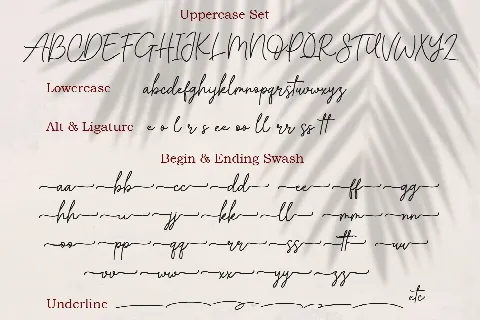 Uppercase Set
ABCDEFGHIJKLMNOPQRSTUVWXYZ
Lowercase abcdefghyklmnopqrstuvwxyz
Alt & Ligature e o l r s ee oo ll rr ss tt
Begin & Ending Swash
aa bb cc dd ee ff gg
hh ii jj kk ll mm nn
oo pp qq rr ss tt uu
vv ww xx yy zz
Underline etc